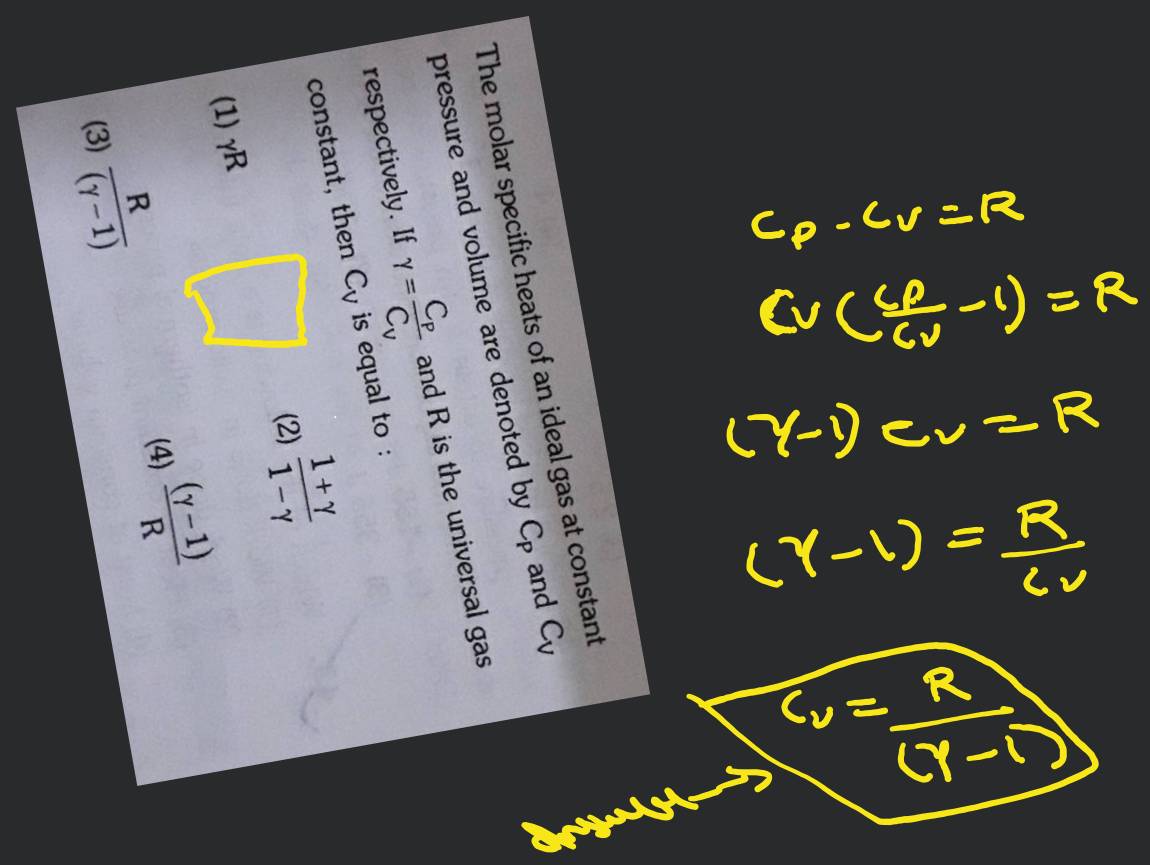 The molar specific heats of an ideal gas at constant
pressure and volume are denoted by C_P and C_V
respectively. If γ = C_P/C_V and R is the universal gas
constant, then C_V is equal to :
(1) γR
(2) (1 + γ)/(1 − γ)
(3) R/(γ − 1)
(4) (γ − 1)/R
C_P - C_V = R
C_V (C_P/C_V - 1) = R
(γ - 1) C_V = R
(γ - 1) = R/C_V
C_V = R/(γ - 1)